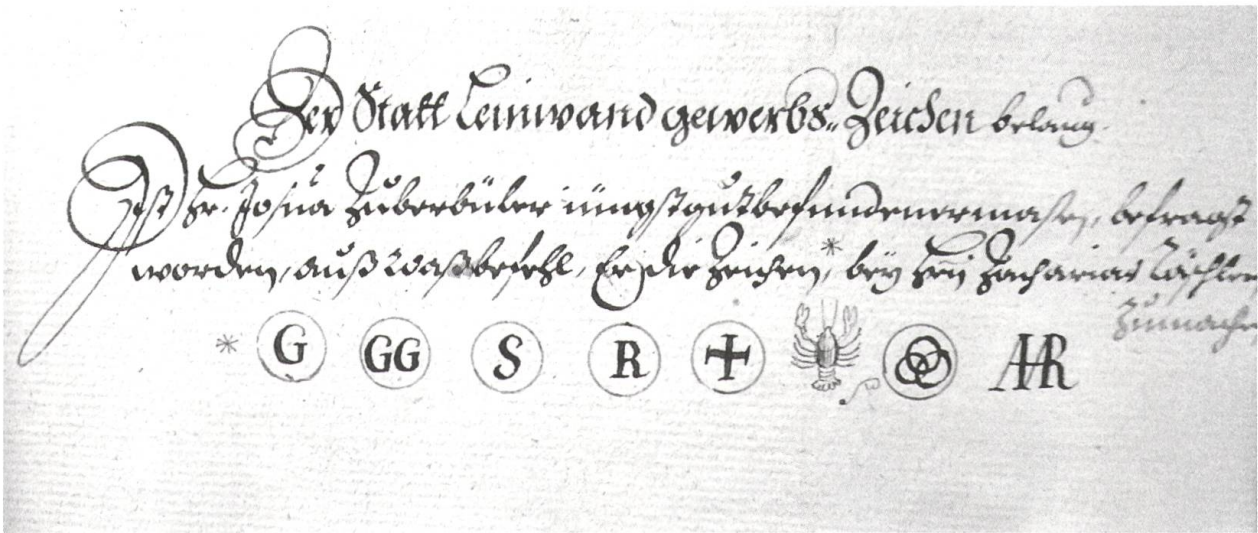 Der Statt Leinwand gewerbs= Zeichen belang.
Ist Hr. Josua Zuberbüler jüngst gutbefundenermaßen, befragt
worden, auß waß befehl, Er die Zeichen,* bey Hrn Zacharias
Zumache
* G GG S R AHR